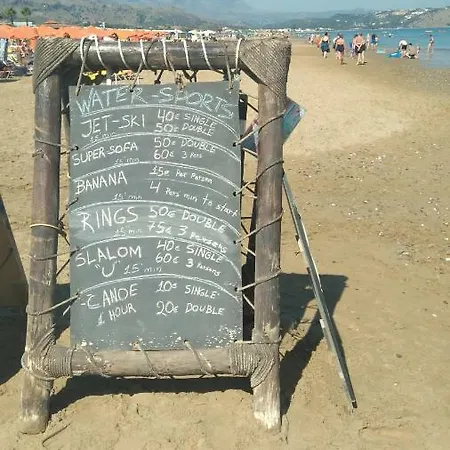 WATER-SPORTS
JET-SKI 40€ SINGLE
15 min 50€ DOUBLE
SUPER SOFA 50€ DOUBLE
15 min 60€ 3 PERS
BANANA 15€ Per Person
15 min 4 Pers min to start
RINGS 50€ DOUBLE
15 min 75€ 3 Persons
SLALOM 40€ SINGLE
"U" 15 min 60€ 3 Persons
CANOE 10€ SINGLE
1 HOUR 20€ DOUBLE